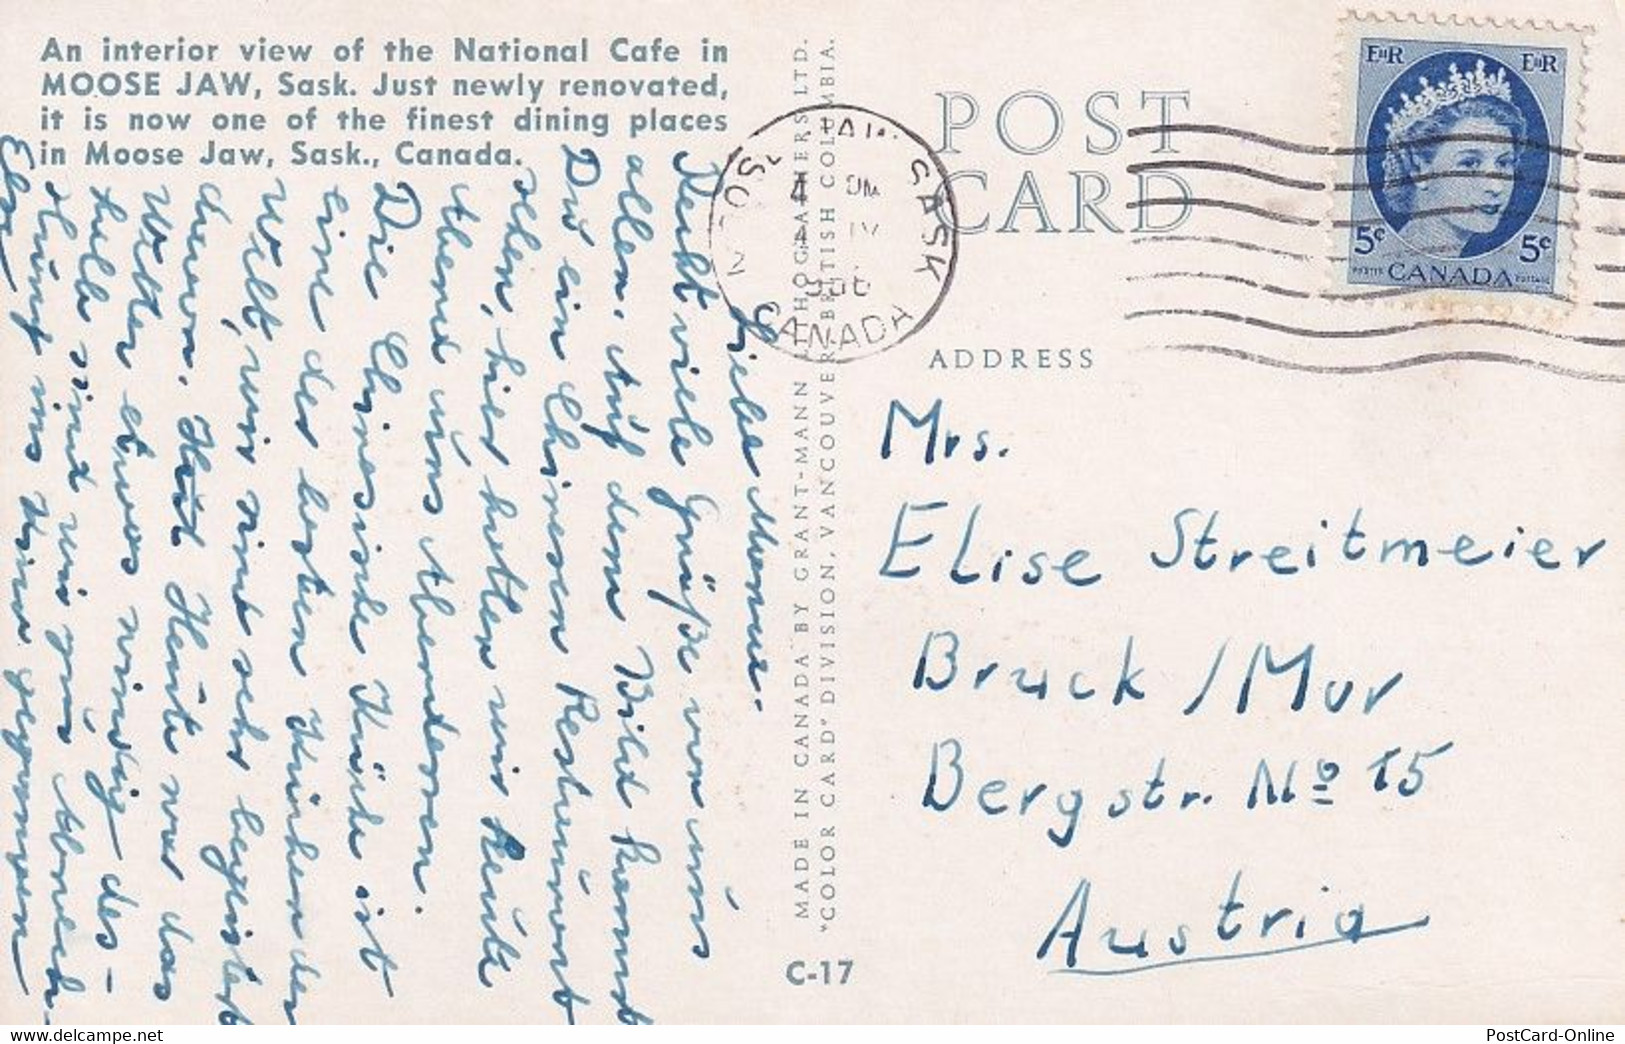 An interior view of the National Cafe in
MOOSE JAW, Sask. Just newly renovated,
it is now one of the finest dining places
in Moose Jaw, Sask., Canada.
Liebe Mome.
Recht viele Grüße von uns
allen. Auf dem Bild kommst
Du ein Chinesen Restaurant
sehen, hier hatten wir heute
Abend uns Abendessen.
Die Chinesische Küche ist
eine der besten Küchen der
Welt, wir sind sehr begeistert
davon. Heute war das
Wetter etwas windig des-
halb sind wir zum Abend-
ins Kino gegangen
MADE IN CANADA BY GRANT-MANN LITHOGRAPHERS LTD.
"COLOR CARD" DIVISION, VANCOUVER, BRITISH COLUMBIA.
C-17
POST
CARD
ADDRESS
MOOSE JAW SASK
4 PM
CANADA
EIIR EIIR
5c 5c
POSTES CANADA POSTAGE
Mrs.
Elise Streitmeier
Bruck / Mur
Bergstr. No 15
Austria
delcampe.net
PostCard-Online